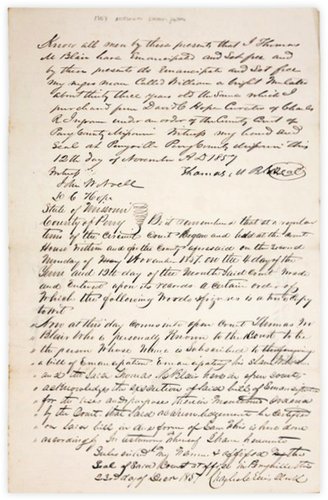 Know all men by these presents that I Thomas
M Blair have Emancipated and Set free and
by these presents do Emancipate and Set free
my negro man Called William a bright Mulatto
about thirty three years old the Same which I
purchased from David C Hope Curator of Charles
R. Ingram under an order of the County Court of
Perry County Missouri Witness my hand and
Seal at Perryville Perry County Missouri this
12th day of November A.D 1857
Witness Thomas M Blair Seal
John W Noell
D. C. Hope
State of Missouri
County of Perry Be it remembered that at a regular
term of the Circuit Court began and held at the Court
House Within and for the County aforesaid on the second
Monday of November 1857. on the 4 day of the
Term and 12th day of the Month Said Court Made
and entered upon its records a Certain order of
Which the following Words & figures is a true Copy
to wit
Now at this day comes into open Court Thomas M
Blair Who is personally Known to the Court to be
the person Whose Name is subscribed to the foregoing
bill of Emancipation Emancipating his Slave William
and the Said Thomas M Blair here in open Court
acknowledges the execution of Said bill of Emancipation
for the uses and purposes therein Mentioned ordered
by the Court that Said acknowledgement be certified
on Said bill in due form of law This is here done
accordingly In testimony Whereof I have hereunto
Subscribed my Name & affixed the
Seal of Said Court at office in Perryville this
23rd day of Nov 1857